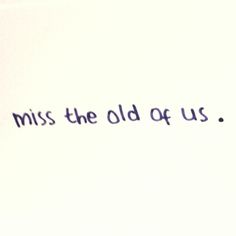 miss the old of us .